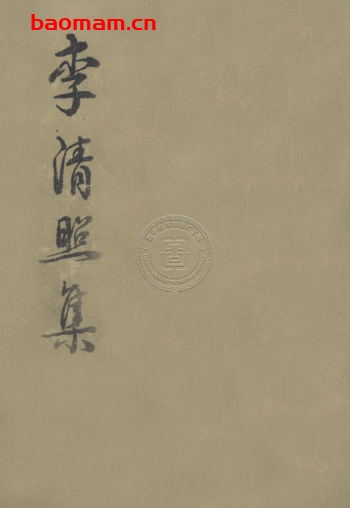 baomam.cn
李清照集